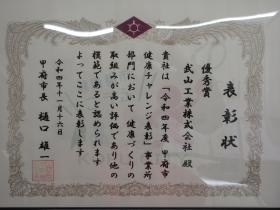 表彰状
優秀賞
武山工業株式会社 殿
貴社は「令和四年度 甲府市
健康チャレンジ表彰」事業所
部門において 健康づくりの
取組みが高い評価であり他の
模範であると認められます
よってここに表彰します
令和四年十一月十六日
甲府市長 樋口 雄一